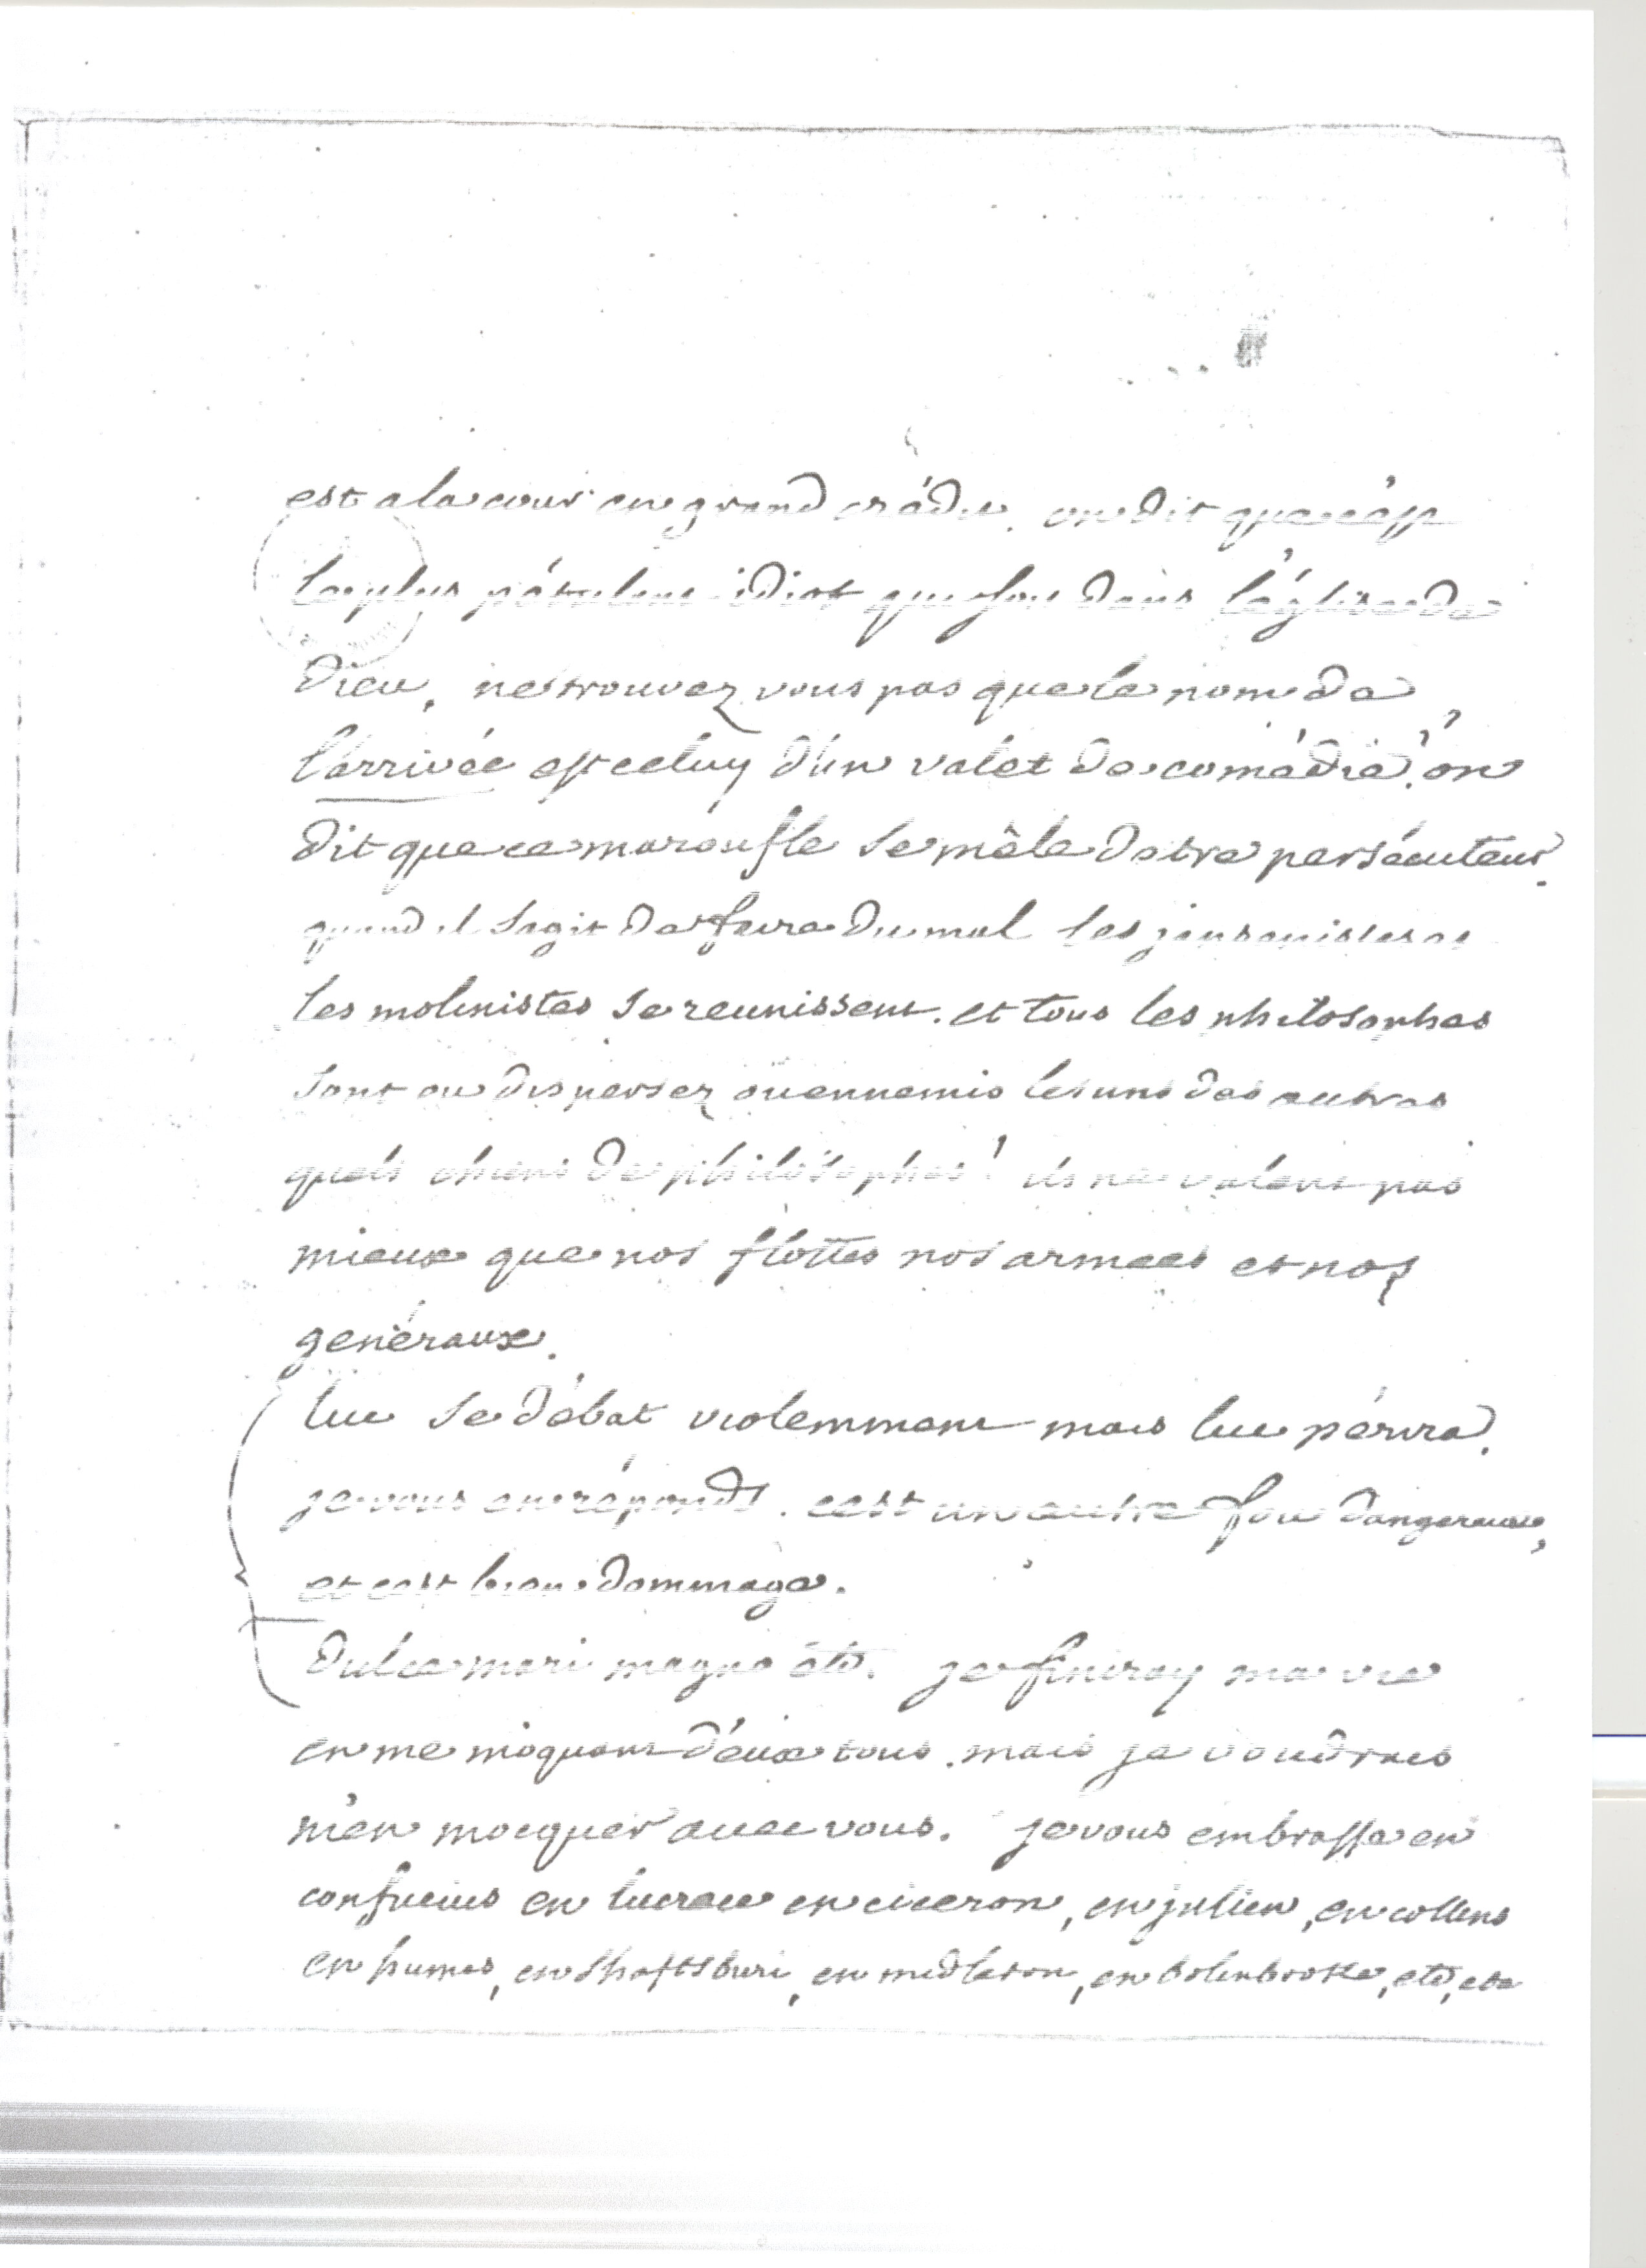 est a la cour en grand crédit. on dit que cest
le plus pétulent idiot qui soit dans l'église de
dieu, ne trouvez vous pas que le nom de
l'arrivée est celuy d'un valet de comédie? on
dit que ce maroufle se mêle d'etre persécuteur.
quand il sagit de faire du mal les jansenistes et
les molinistes se reunissent. et tous les philosophes
sont ou dispersez ou ennemis les uns des autres
quels chiens de philosophes! ils ne valent pas
mieux que nos flottes nos armées et nos
generaux.
luc se débat violemment mais luc périra.
je vous en réponds. cest un autre fou dangereux,
et cest bien dommage.
dulce mari magno etc. je finiray ma vie
en me moquant d'eux tous. mais je voudrais
m'en mocquer avec vous. je vous embrasse en
confucius en lucrece en ciceron, en julien, en collins
en humes, en shaftsburi, en midleton, en bolinbroke, etc, etc